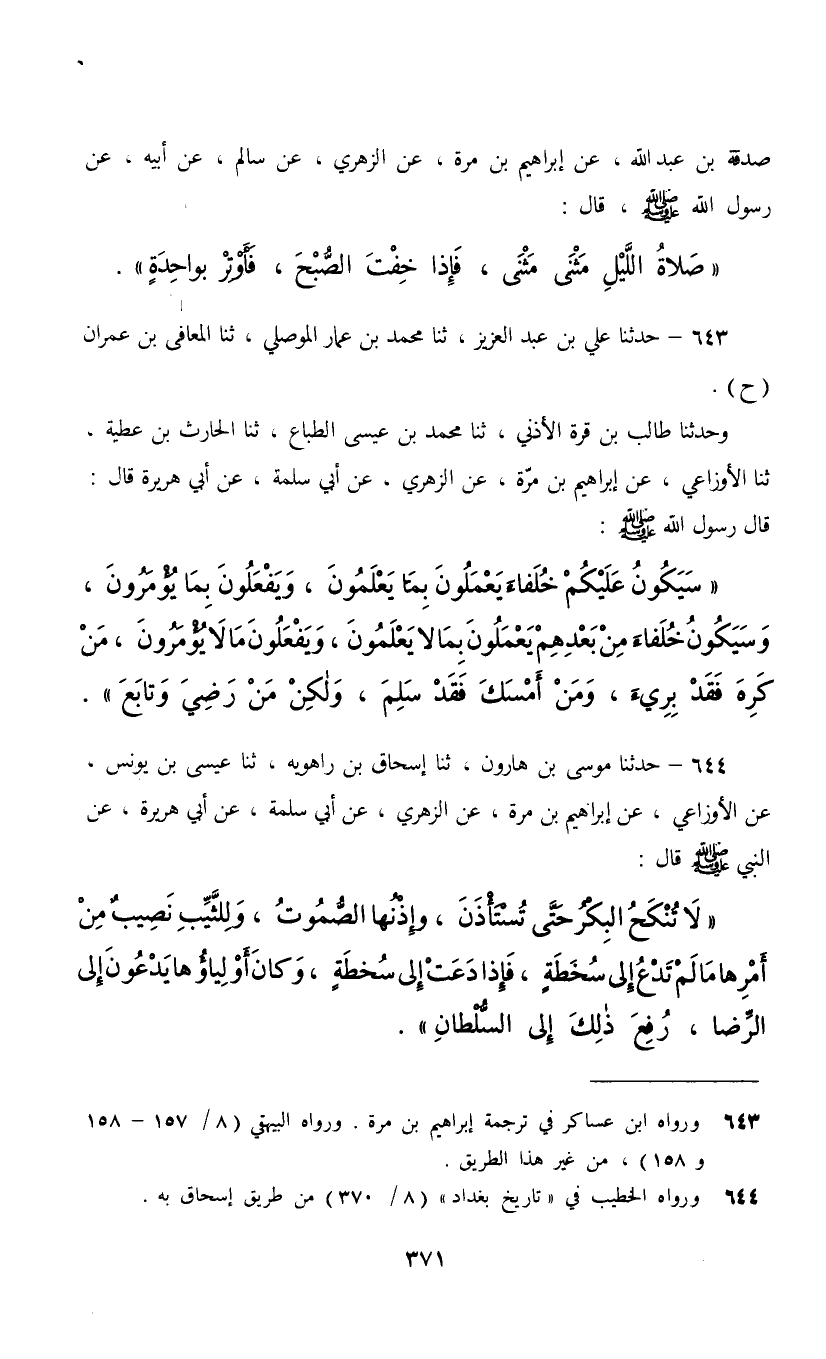 صدقة بن عبد الله ، عن إبراهيم بن مرة ، عن الزهري ، عن سالم ، عن أبيه ، عن
رسول الله ﷺ ، قال :
« صَلاةُ اللَّيْلِ مَثْنَى مَثْنَى ، فَإِذا خِفْتَ الصُّبْحَ ، فَأَوْتِرْ بواحِدَةٍ » .
٦٤٣ – حدثنا علي بن عبد العزيز ، ثنا محمد بن عمار الموصلي ، ثنا المعافى بن عمران
(ح) .
وحدثنا طالب بن قرة الأذني ، ثنا محمد بن عيسى الطباع ، ثنا الحارث بن عطية .
ثنا الأوزاعي ، عن إبراهيم بن مرّة ، عن الزهري . عن أبي سلمة ، عن أبي هريرة قال :
قال رسول الله ﷺ :
« سَيَكُونُ عَلَيْكُمْ خُلَفاءَ يَعْمَلُونَ بِمَا يَعْلَمُونَ ، وَيَفْعَلُونَ بِمَا يُؤْمَرُونَ ،
وَسَيَكُونُ خُلَفاءَ مِنْ بَعْدِهِمْ يَعْمَلُونَ بِمَا لا يَعْلَمُونَ ، وَيَفْعَلُونَ مَا لَا يُؤْمَرُونَ ، مَنْ
كَرِهَ فَقَدْ بِرِيءَ ، وَمَنْ أَمْسَكَ فَقَدْ سَلِمَ ، وَلٰكِنْ مَنْ رَضِيَ وَتابَعَ » .
٦٤٤ – حدثنا موسى بن هارون ، ثنا إسحاق بن راهويه ، ثنا عيسى بن يونس .
عن الأوزاعي ، عن إبراهيم بن مرة ، عن الزهري ، عن أبي سلمة ، عن أبي هريرة ، عن
النبي ﷺ قال :
« لَا تُنْكَحُ البِكْرُ حَتَّى تُسْتَأْذَنَ ، وإِذْنُها الصُّمُوتُ ، وَلِلثَّيِّبِ نَصِيبٌ مِنْ
أَمْرِها مَا لَمْ تَدْعُ إِلى سُخَطَةٍ ، فَإِذا دَعَتْ إِلى سُخطَةٍ ، وَكانَ أَوْلِياؤُها يَدْعُونَ إِلى
الرِّضا ، رُفِعَ ذٰلِكَ إِلى السُّلْطانِ » .
٦٤٣ ورواه ابن عساكر في ترجمة إبراهيم بن مرة . ورواه البيهقي (٨/ ١٥٧ – ١٥٨
و ١٥٨) ، من غير هذا الطريق .
٦٤٤ ورواه الخطيب في « تاريخ بغداد » (٨/ ٣٧٠) من طريق إسحاق به .
٣٧١